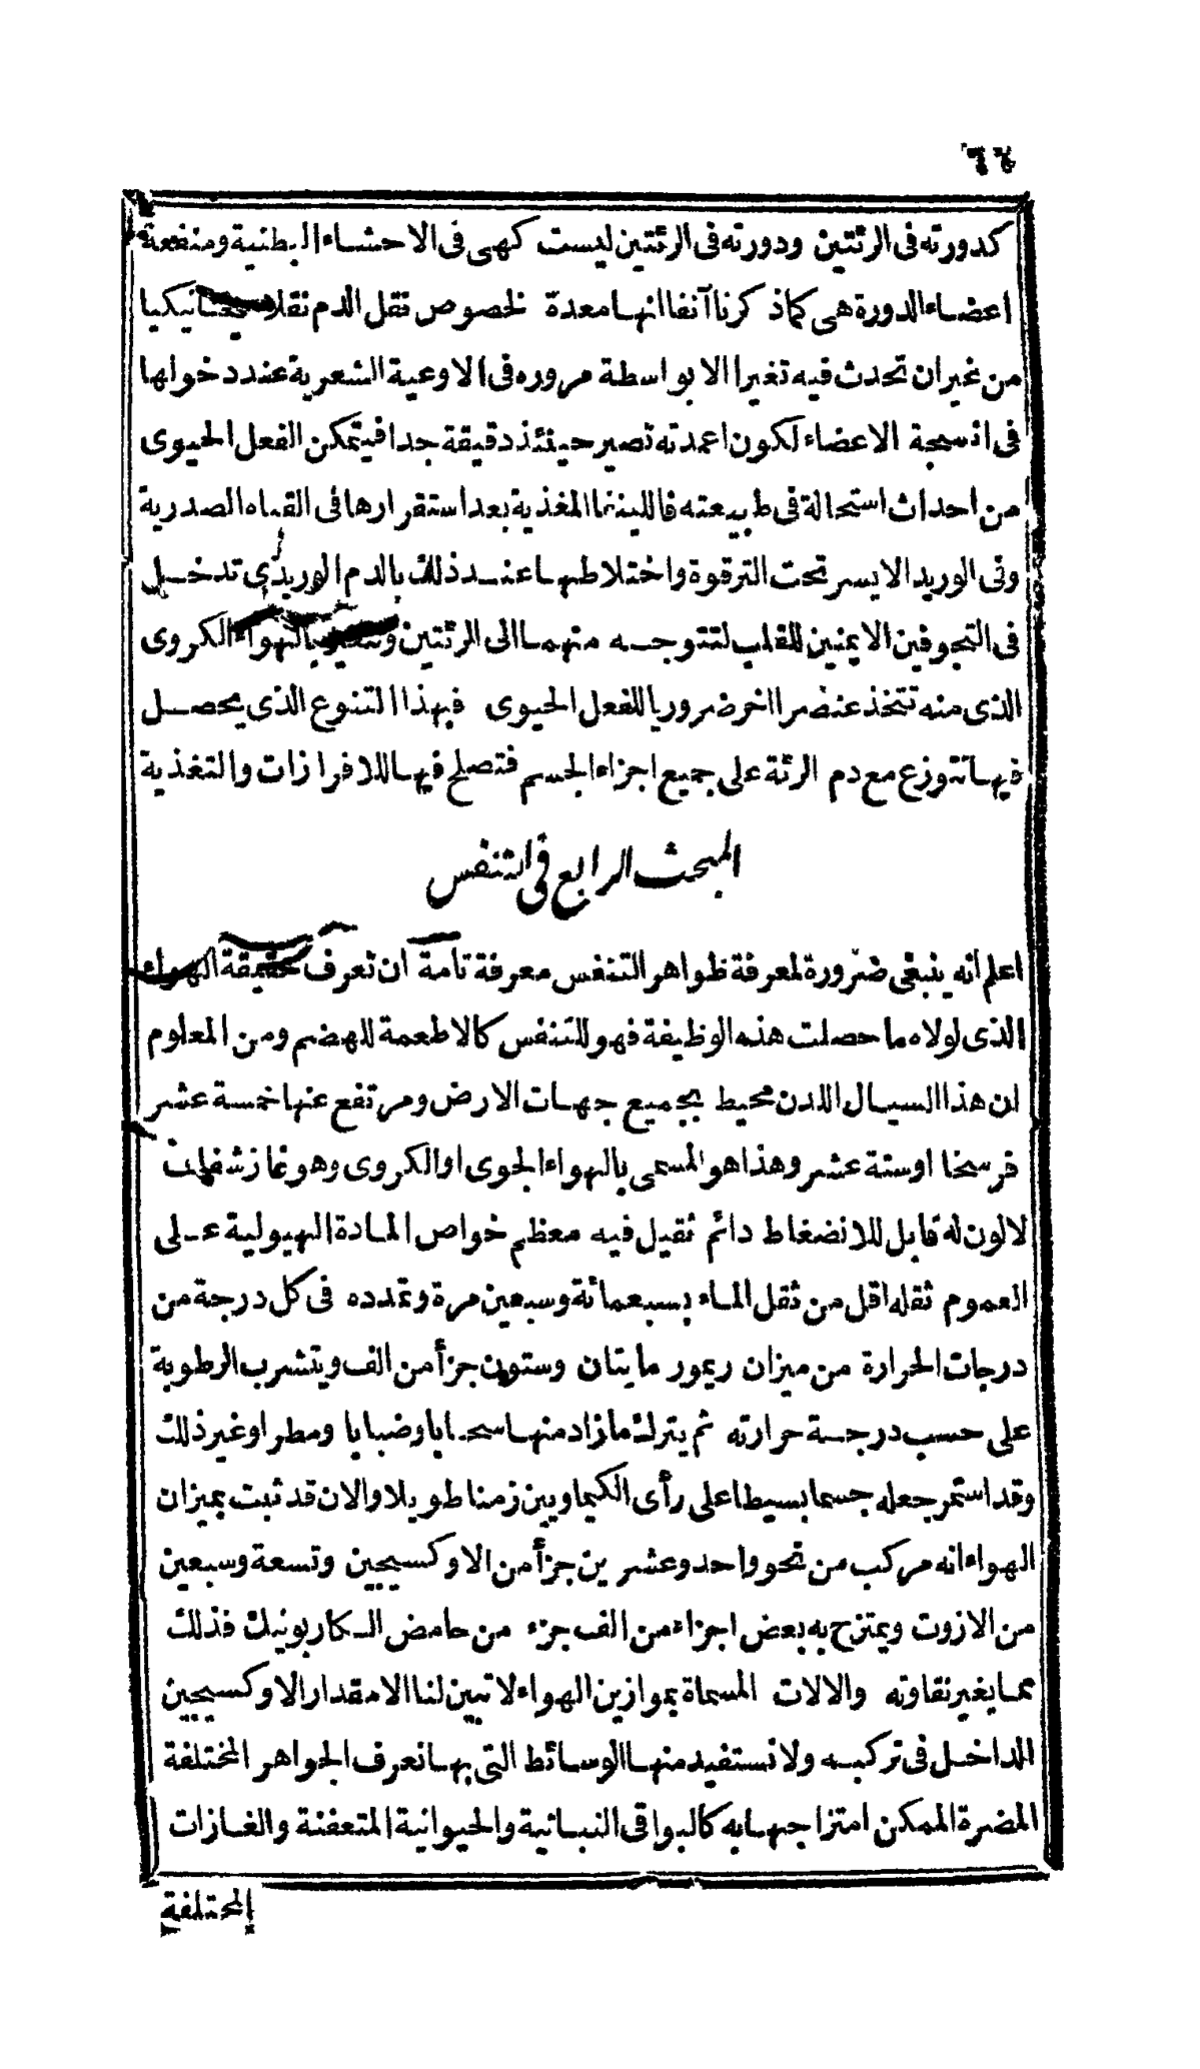 ٦٤
كدورته فى الرئتين ودورته فى الرئتين ليست كهى فى الاحشاء البطنية ومنفعة
اعضاء الدورة هى كما ذكرنا آنفا انها معدة لخصوص نقل الدم نقلا ميخانيكيا
من غير ان تحدث فيه تغيرا الا بواسطة مروره فى الاوعية الشعرية عند دخولها
فى انسجة الاعضاء لكون اعمدته تصير حينئذ دقيقة جدا فيتمكن الفعل الحيوى
من احداث استحالة فى طبيعته فاللينفا المغذية بعد استقرارها فى القناه الصدرية
وفى الوريد الايسر تحت الترقوة واختلاطها عند ذلك بالدم الوريدى تدخل
فى التجوفين الايمنين للقلب لتتوجه منهما الى الرئتين بالهواء الكروى
الذى منه تتخذ عنصرا اخر ضروريا للفعل الحيوى فبهذا التنوع الذى يحصل
فيها تتوزع مع دم الرئة على جميع اجزاء الجسم فتصلح فيها للافرازات والتغذية
المبحث الرابع فى التنفس
اعلم انه ينبغى ضرورة لمعرفة ظواهر التنفس معرفة تامة ان تعرف حقيقة الهواء
الذى لولاه ما حصلت هذه الوظيفة فهو للتنفس كالاطعمة للهضم ومن المعلوم
ان هذا السيال اللدن محيط بجميع جهات الارض ومرتفع عنها خمسة عشر
فرسخا او ستة عشر وهذا هو المسمى بالهواء الجوى او الكروى وهو غاز شفاف
لا لون له قابل للانضغاط دائم ثقيل فيه معظم خواص المادة الهيولية على
العموم ثقله اقل من ثقل الماء بسبعمائة وسبعين مرة وتمدده فى كل درجة من
درجات الحرارة من ميزان ريمور مايتان وستون جزأ من الف ويتشرب الرطوبة
على حسب درجة حرارته ثم يترك ما زاد منها سحابا وضبابا ومطرا وغير ذلك
وقد استمر جعله جسما بسيطا على رأى الكيماويين زمنا طويلا والان قد ثبت بميزان
الهواء انه مركب من نحو واحد وعشرين جزأ من الاوكسيجين وتسعة وسبعين
من الازوت ويمتزج به بعض اجزاء من الف جزء من حامض الكاربونيك فذلك
مما يغير نقاوته والالات المسماة بموازين الهواء لا تبين لنا الا مقدار الاوكسيجين
الداخل فى تركيبه ولا نستفيد منها الوسائط التى بها نعرف الجواهر المختلفة
المضرة الممكن امتزاجها به كالبواقى النباتية والحيوانية المتعفنة والغازات
المختلفة